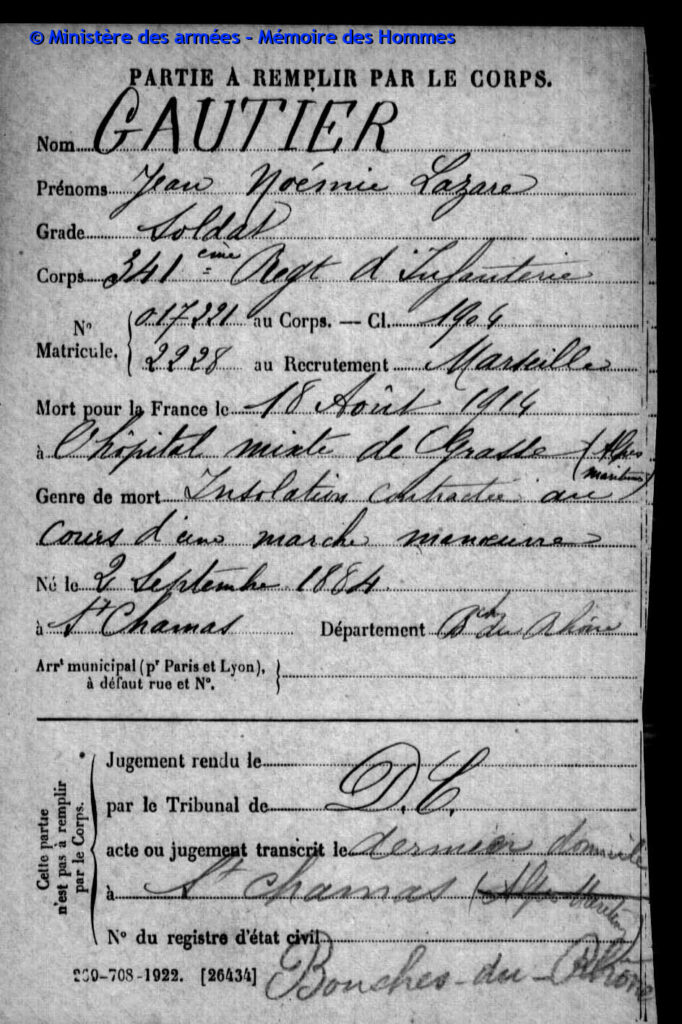 © Ministère des armées - Mémoire des Hommes
PARTIE À REMPLIR PAR LE CORPS.
Nom GAUTIER
Prénoms Jean Noémie Lazare
Grade Soldat
Corps 341ème Regt d'Infanterie
N° Matricule. { 017221 au Corps. — Cl. 1904
2228 au Recrutement Marseille
Mort pour la France le 18 Août 1914
à l'hôpital mixte de Grasse (Alpes maritimes)
Genre de mort Insolation contractée au
cours d'une marche manœuvre
Né le 2 Septembre 1884
à St Chamas Département B. du Rhône
Arrt municipal (pr Paris et Lyon), }
à défaut rue et N°.
Cette partie n'est pas à remplir par le Corps.
Jugement rendu le
par le Tribunal de D.C.
acte ou jugement transcrit le dernier domicile
à St Chamas (Alpes Maritimes)
N° du registre d'état civil
Bouches-du-Rhône
269-708-1922. [26434]